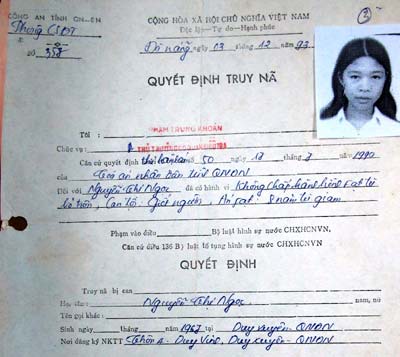 CÔNG AN TỈNH QN-ĐN
Phòng CSĐT
Số 358
CỘNG HÒA XÃ HỘI CHỦ NGHĨA VIỆT NAM
Độc lập – Tự do – Hạnh phúc
Đà nẵng ngày 03 tháng 12 năm 93
QUYẾT ĐỊNH TRUY NÃ
Tôi : PHẠM TRUNG KHOÁN
Chức vụ: THỦ TRƯỞNG
Căn cứ quyết định số 50 ngày tháng năm 1990
của Tòa án nhân dân QNĐN
Đối với Nguyễn Thị Ngọc đã có hành vi không chấp hành
bỏ trốn, Can tội: Giết người, Án phạt: 8 năm tù giam
Phạm vào điều Bộ luật hình sự nước CHXHCNVN,
Căn cứ điều 136 Bộ luật tố tụng hình sự nước CHXHCNVN.
QUYẾT ĐỊNH
Truy nã bị can
Họ tên: Nguyễn Thị Ngọc nam, nữ
Tên gọi khác:
Sinh ngày tháng năm 1967 tại Duy xuyên - QNĐN
Nơi đăng ký NKTT Thôn 2 - Duy Vinh, Duy xuyên - QNĐN